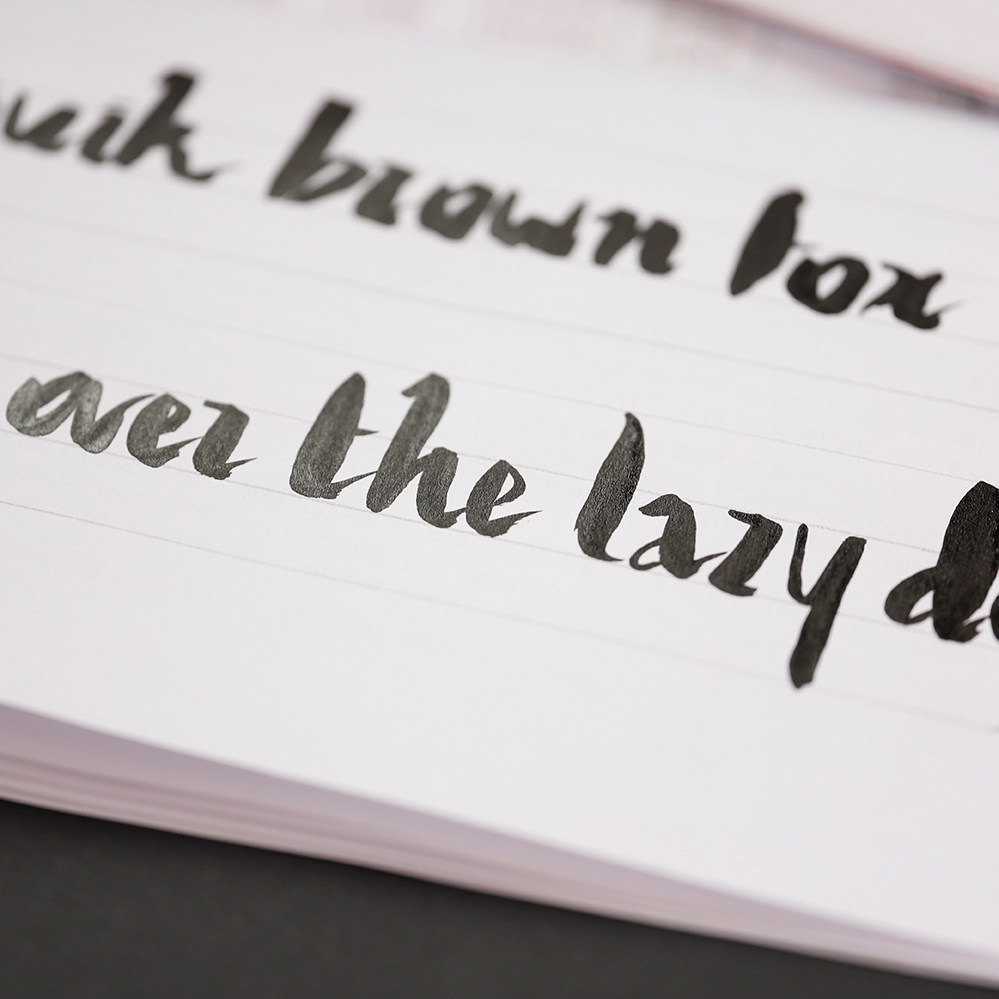 uik brown fox
over the lazy d